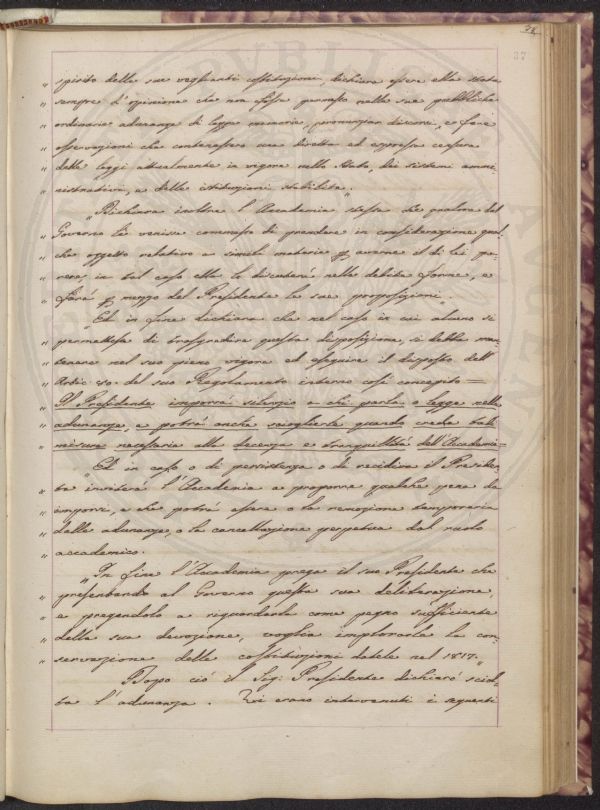 37
" spirito delle sue veglianti costituzioni, dichiara essere ella stata
" sempre d'opinione che non fosse permesso nelle sue pubbliche
" ordinarie adunanze di legger memorie, pronunziar discorsi, e fare
" osservazioni che contenessero una diretta ed espressa censura
" delle leggi attualmente in vigore nello Stato, dei sistemi ammi-
" nistrativi, e delle istituzioni stabilite".
" "Dichiara inoltre l'Accademia stessa che qualora dal
" Governo le venisse commesso di prendere in considerazione qual-
" che oggetto relativo a simili materie p averne il di lei pa-
" rere, in tal caso ella lo discuterà nelle debite forme, e
" farà p mezzo del Presidente le sue proposizioni".
" "Ed in fine dichiara che nel caso in cui alcuno si
" permettesse di trasgredire questa disposizione, si debba man-
" tenere nel suo pieno vigore ed eseguire il disposto dell'
" Artic. 50. del suo Regolamento interno così concepito =
" Il Presidente imporrà silenzio a chi parla o legge nelle
" adunanze, e potrà anche sciogliere quando creda tal
" misura necessaria alla decenza e tranquillità dell'Accademia =
" "Ed in caso o di persistenza o di recidiva il Presiden-
" te inviterà l'Accademia a proporre qualche pena da
" imporsi, e che potrà essere o la remozione temporaria
" dalle adunanze, o la cancellazione perpetua dal ruolo
" accademico.
" "In fine l'Accademia prega il suo Presidente che
" presentando al Governo questa sua deliberazione,
" e pregandolo a riguardarla come pegno sufficiente
" della sua devozione, voglia implorarle la con-
" servazione delle costituzioni datele nel 1817."
Dopo ciò il Sig: Presidente dichiarò sciol-
ta l'adunanza. Vi erano intervenuti i seguenti